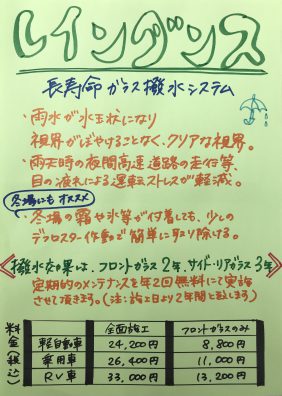 レインダンス
長寿命ガラス撥水システム
・雨水が水玉状になり
視界がぼやけることなく、クリアな視界。
・雨天時の夜間高速道路の走行等、
目の疲れによる運転ストレスが軽減。
冬場にもオススメ
・冬場の霜や氷等が付着しても、少しの
デフロスター作動で簡単に取り除ける。
《撥水効果は、フロントガラス2年、サイド・リアガラス3年》
定期的のメンテナンスを年2回無料にて実施
させて頂きます。(注:施工日より2年間と致します)
料金(税込) 全面施工 フロントガラスのみ
軽自動車 24,200円 8,800円
乗用車 26,400円 11,000円
RV車 33,000円 13,200円